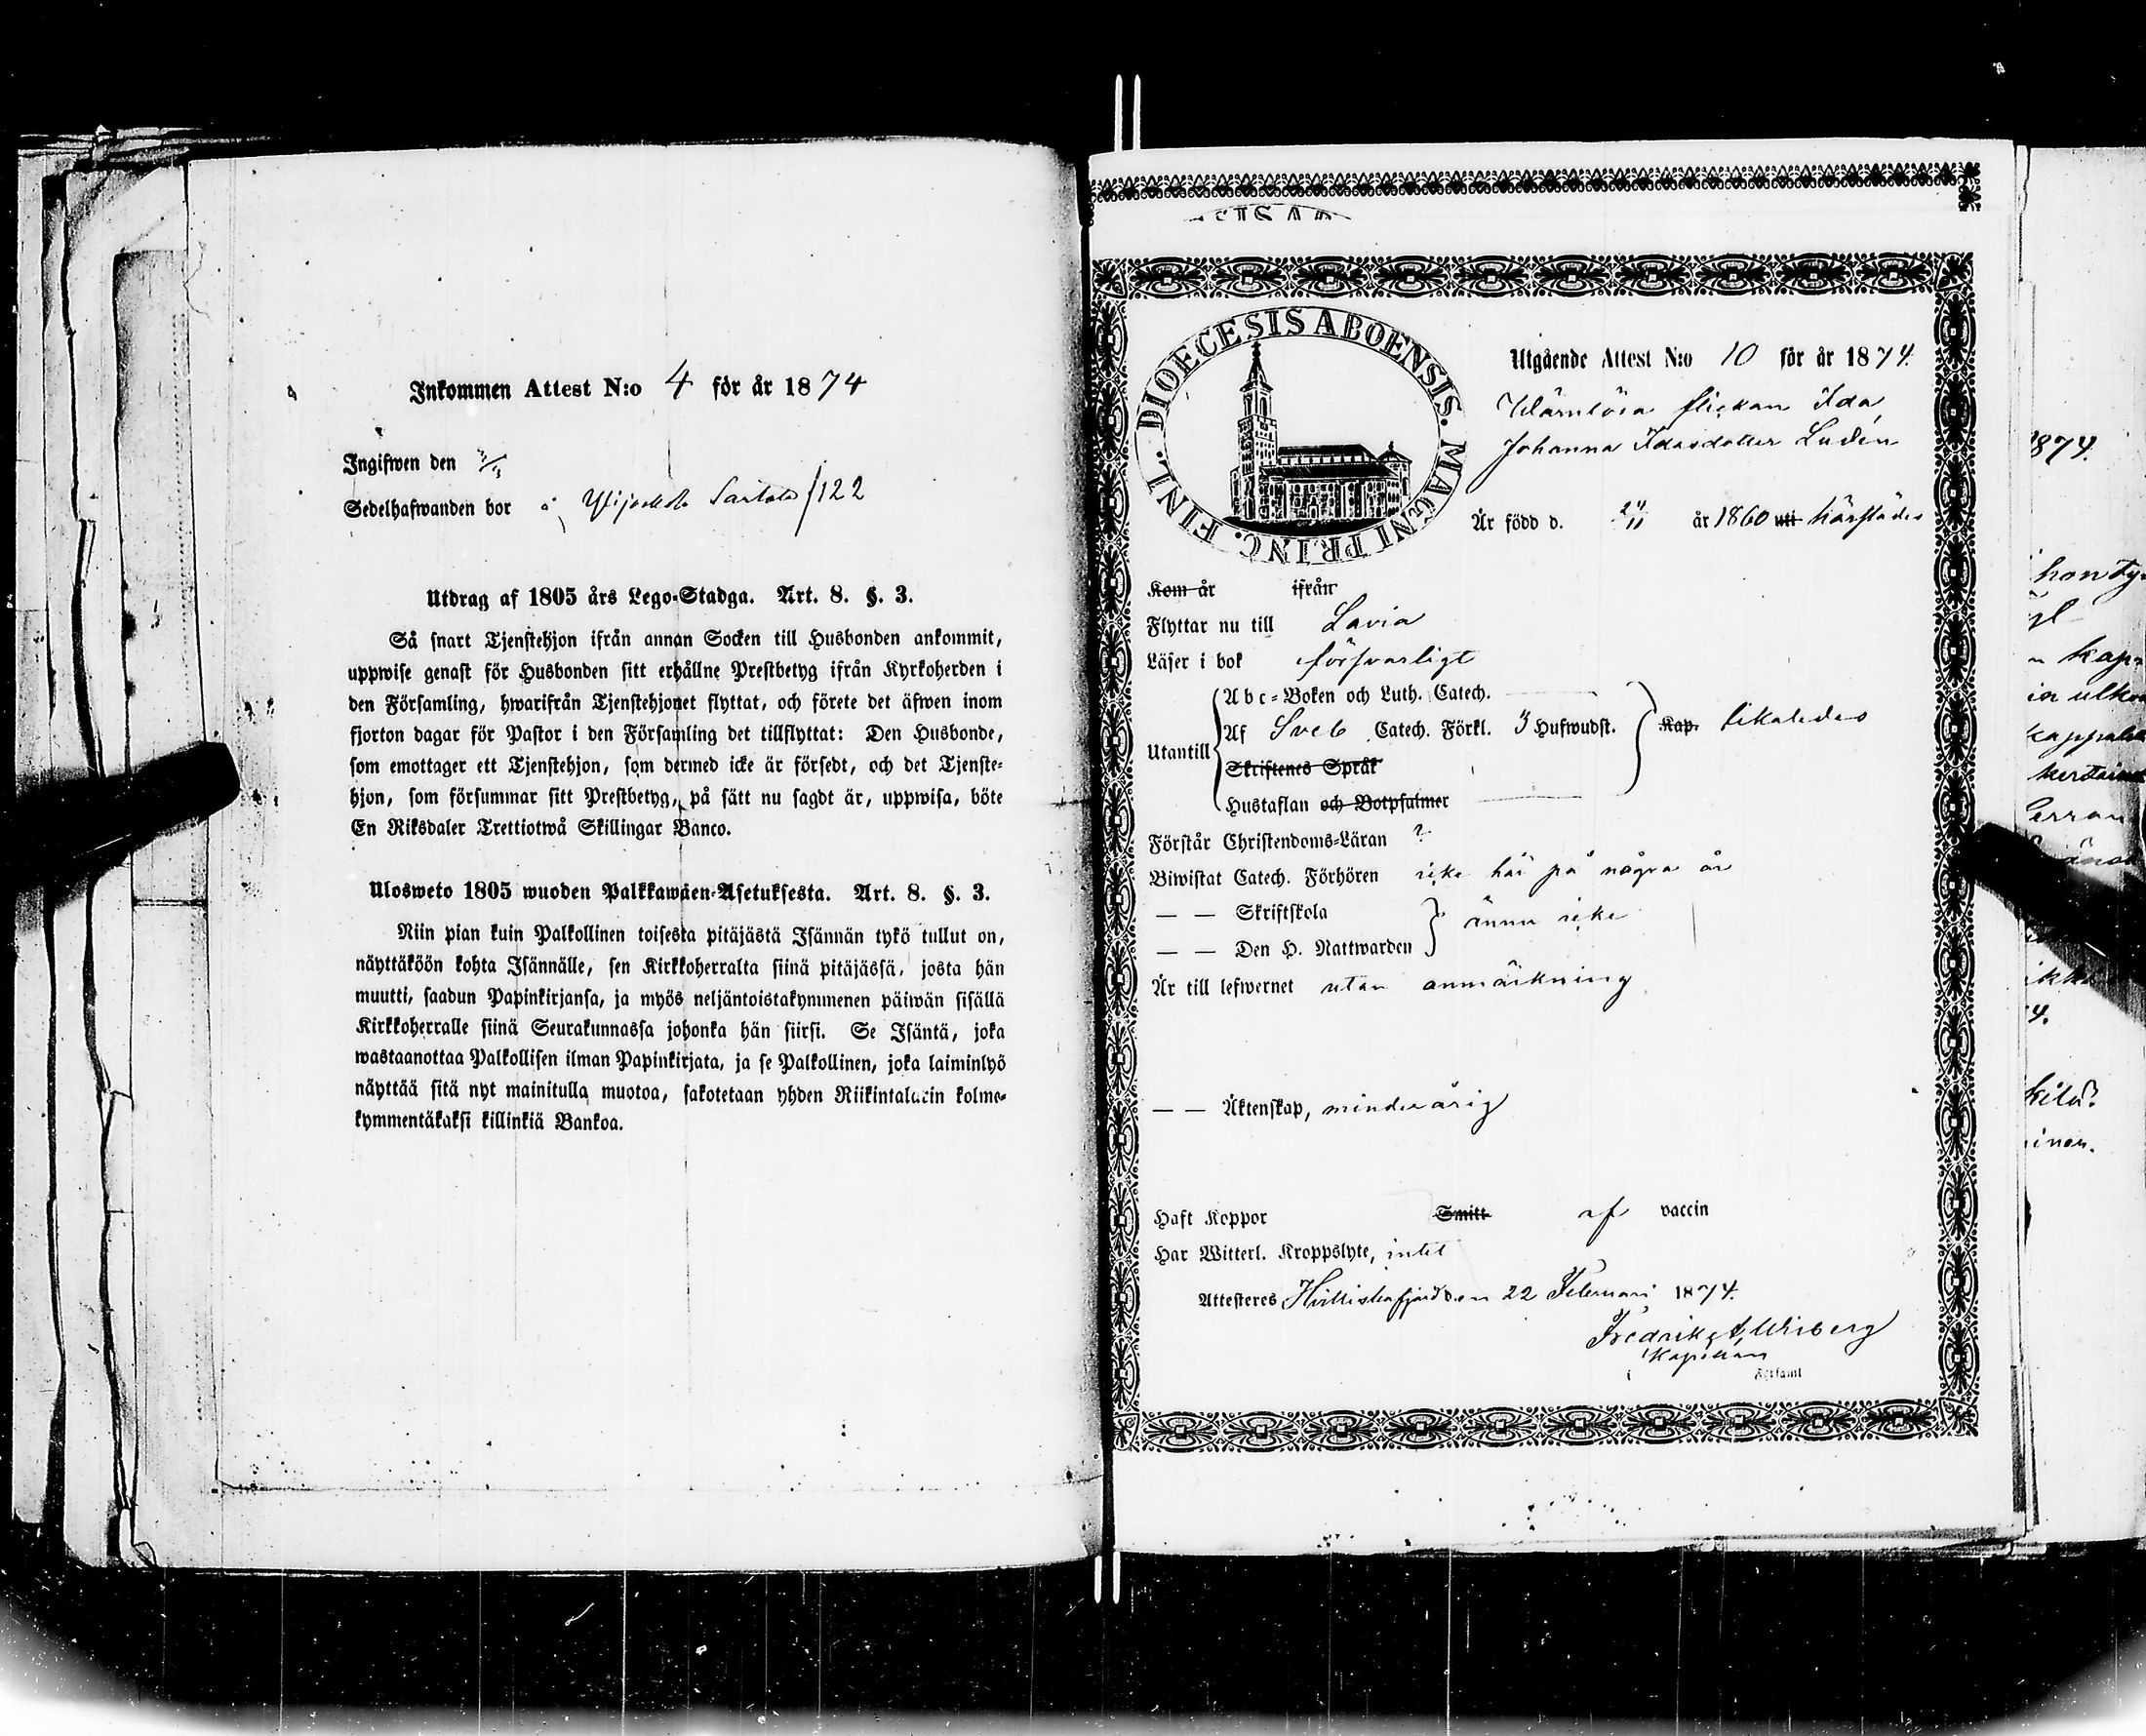 Inkommen Attest N:o 4 för år 1874
Ingifwen den
Sedelhafwanden bor i /122
Utdrag af 1805 års Lego-Stadga. Art. 8. §. 3.
Så snart Tjenstehjon ifrån annan Socken till Husbonden ankommit,
uppwise genast för Husbonden sitt erhållne Prestbetyg ifrån Kyrkoherden i
den Församling, hwarifrån Tjenstehjonet flyttat, och förete det äfwen inom
fjorton dagar för Pastor i den Församling det tillflyttat: Den Husbonde,
som emottager ett Tjenstehjon, som dermed icke är försedt, och det Tjenste-
hjon, som försummar sitt Prestbetyg, på sätt nu sagdt är, uppwisa, böte
En Riksdaler Trettiotwå Skillingar Banco.
Ulosweto 1805 wuoden Palkkawäen-Asetuksesta. Art. 8. §. 3.
Niin pian kuin Palkollinen toisesta pitäjästä Isännän tykö tullut on,
näyttäköön kohta Isännälle, sen Kirkkoherralta siinä pitäjässä, josta hän
muutti, saadun Papinkirjansa, ja myös neljäntoistakymmenen päiwän sisällä
Kirkkoherralle siinä Seurakunnassa johonka hän siirsi. Se Isäntä, joka
wastaanottaa Palkollisen ilman Papinkirjata, ja se Palkollinen, joka laiminlyö
näyttää sitä nyt mainitulla muotoa, sakotetaan yhden Riikintalarin kolme-
kymmentäkaksi killinkiä Bankoa.
DIOECESIS ABOENSIS. MAGNI PRINC. FINL.
Utgående Attest N:o 10 för år 1874.
Wärnlösa flickan Ida
Johanna Idasdotter Ludén
Är född d. 24/11 år 1860 uti härstädes
Kom år ifrån
Flyttar nu till Lavia
Läser i bok försvarligt
Utantill
Abc-Boken och Luth. Catech.
Af Sveb Catech. Förkl. 3 Hufwudst. Kap. likaledes
Skriftenes Språk
Hustaflan och Botpsalmer
Förstår Christendoms-Läran ?
Biwistat Catech. Förhören icke här på några år
— — Skriftskola
ännu icke
— — Den H. Nattwarden
Är till lefwernet utan anmärkning
— — Äktenskap, minderårig
Haft Koppor Smitt af vaccin
Har Witterl. Kroppslyte, intet
Attesteres den 22 Februari 1874.
Fredrik A. Wiberg
Kapellan
i Församl
1874.